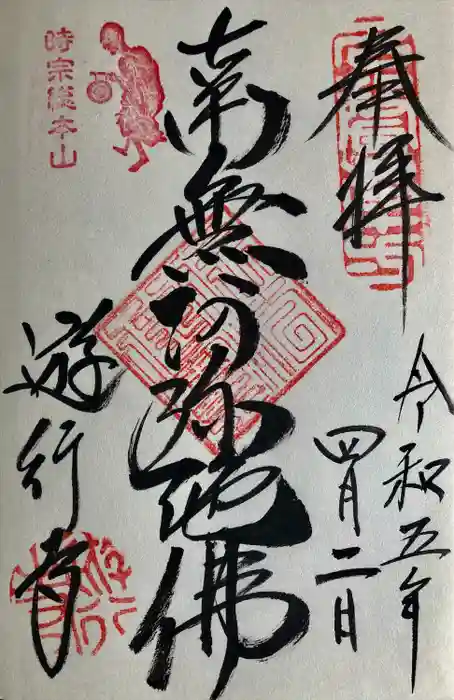 奉拝
令和五年
四月二日
南無阿弥陀佛
時宗總本山
遊行寺